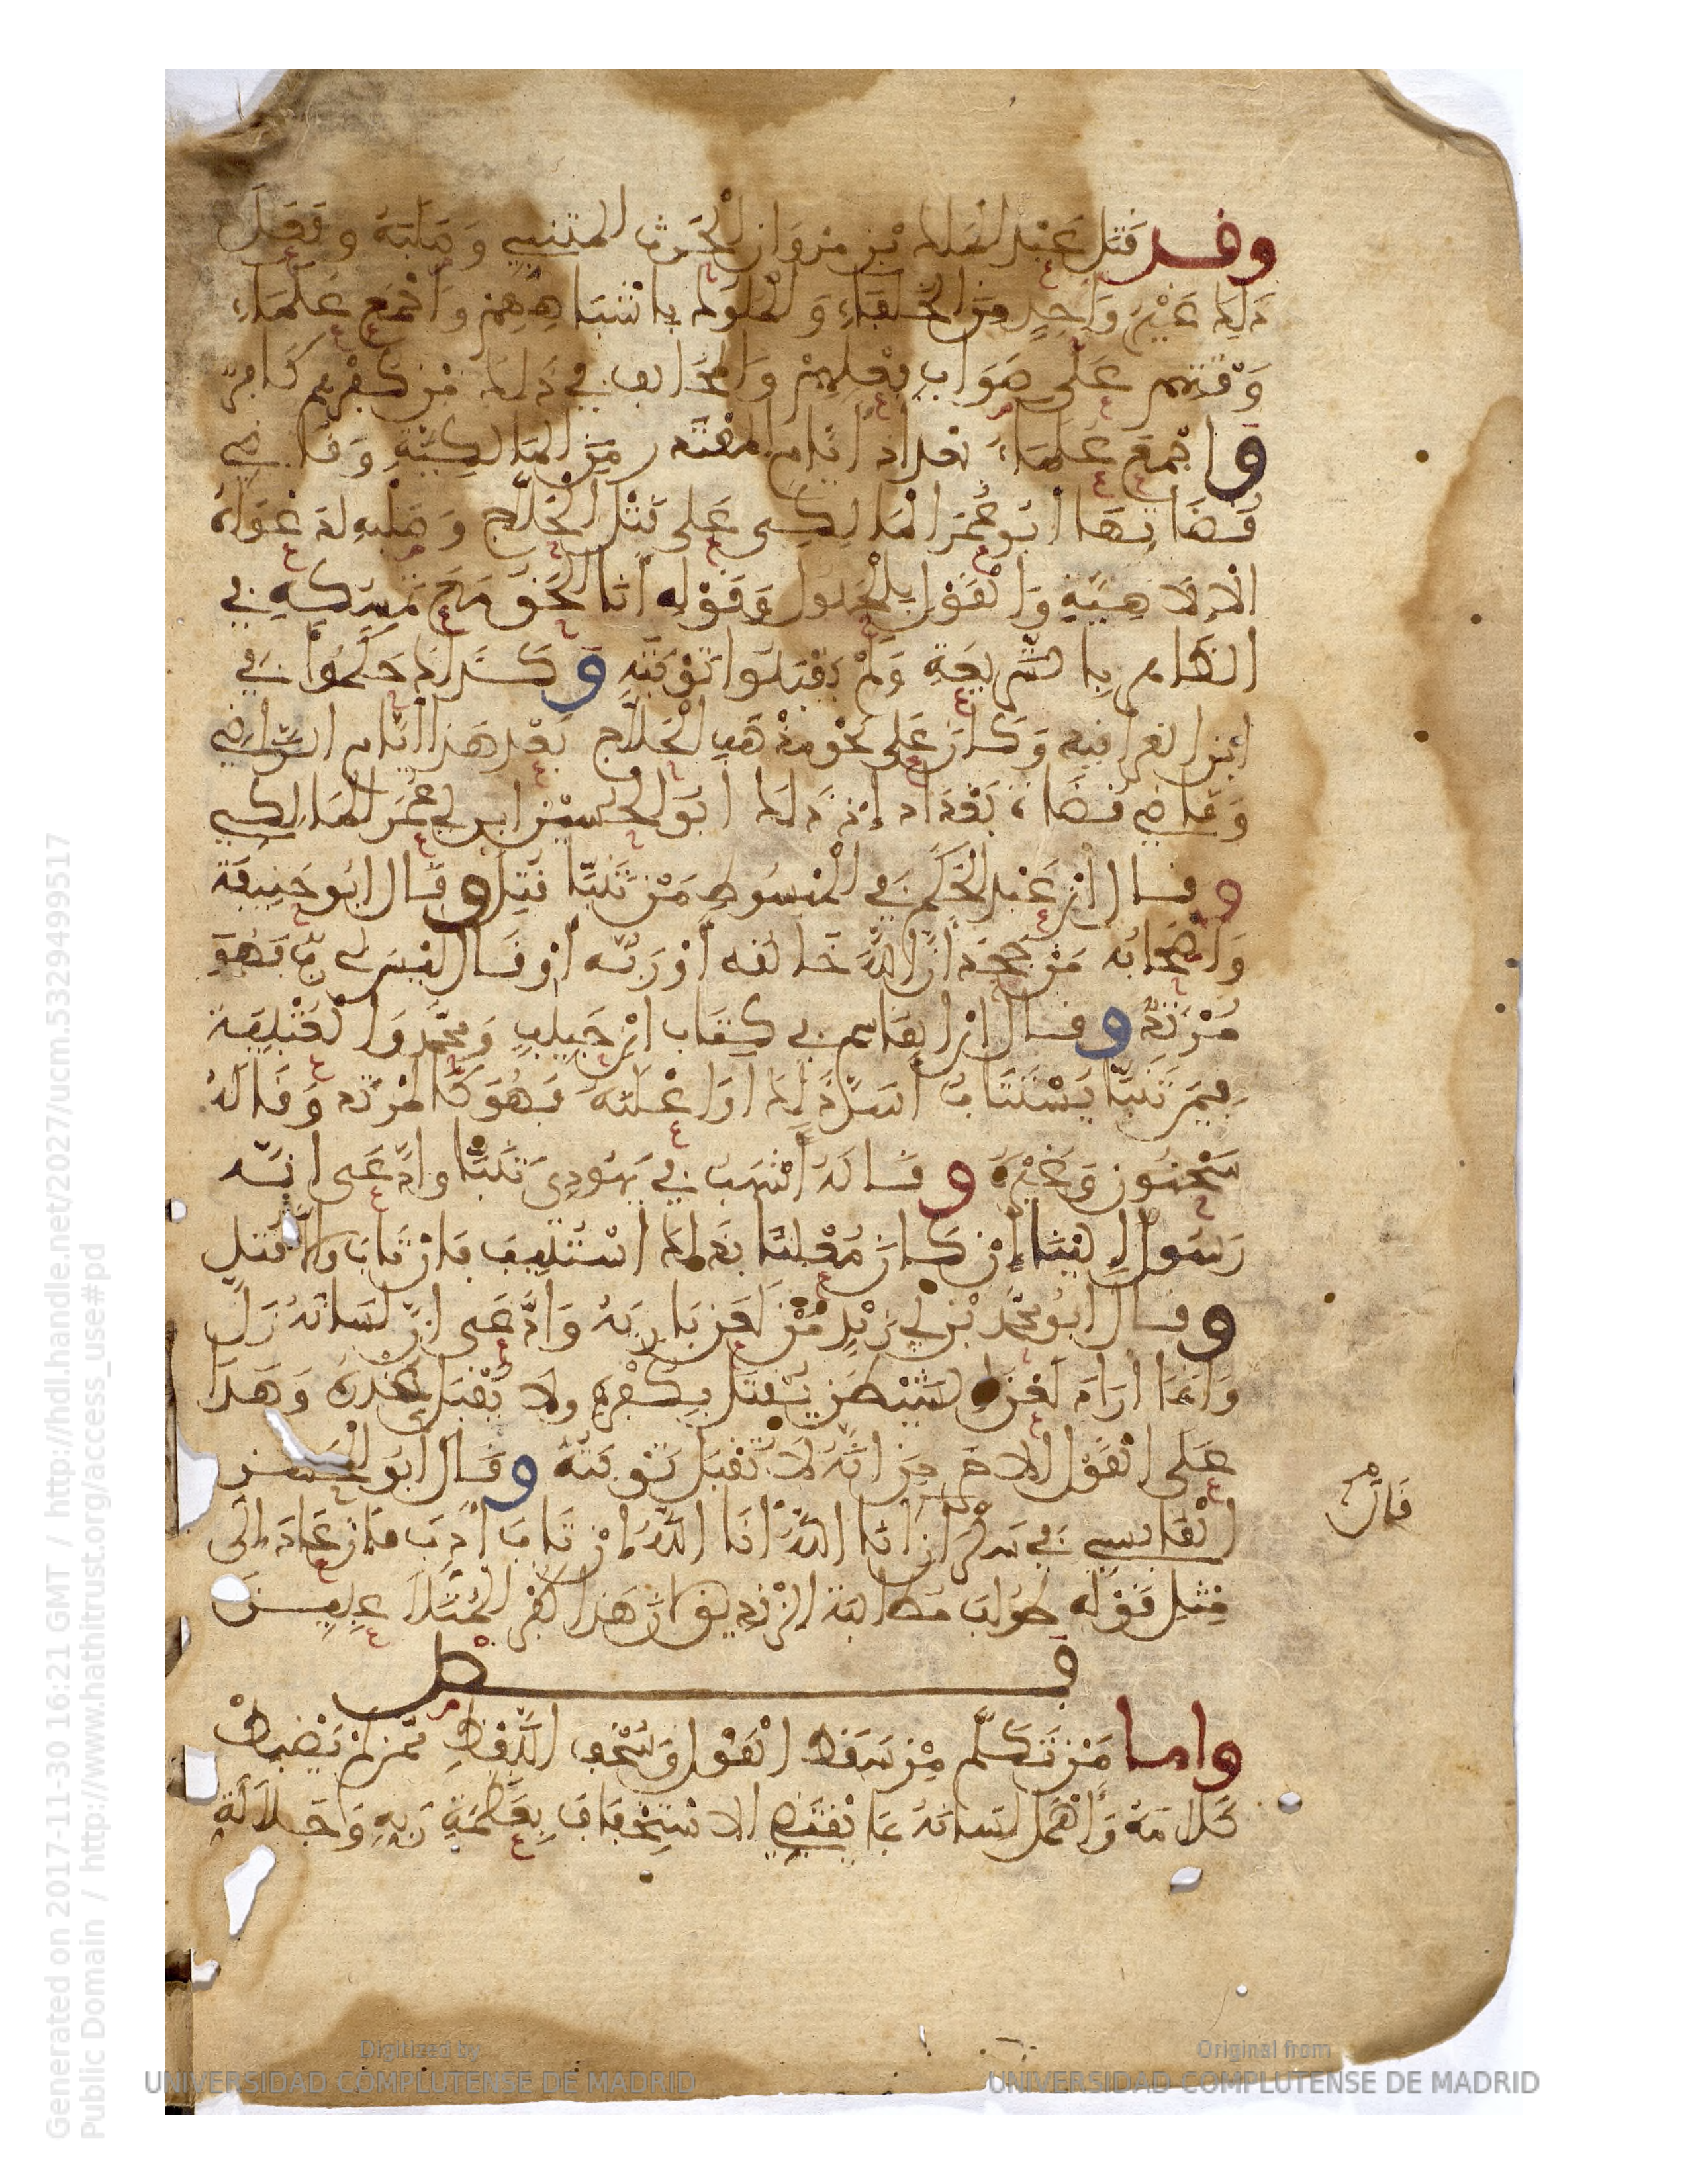 وقد قَتَل عَبْد الملك بْن مرْوَان الْحَرث المتنبي وَصَلبَهُ وفَعَلَ
ذلِك غَيْرُ وَاحِدٍ مِنَ الخُلَفَاءِ وَالْمُلُوك بِأشْبَاهِهِمْ وَأَجْمَعَ عُلَمَاءُ
وَقْتهم عَلَى صَوَابِ فِعْلِهِمْ وَالمُخَالِف في ذَلِك مِنْ كُفْرِهِم كَافِرٌ
وَاجْمَعَ عُلمَاءُ بغداد ايّام المقْتَدر مِنَ المَالِكِيَّةِ وَقَاضِي
قُضَاتِهَا ابُو عُمَرَ الْمَالِكِي عَلَى قَتْلِ الْحَلَّاجِ وَصَلْبِهِ لِدَعْوَاهُ
الْإِلَاهِيَّةِ وَالْقَوْلِ بِالْحُلُول وَقَوْلِهِ أَنَا الْحَقُّ مَعَ تَمَسُّكِهِ فِي
الظَّاهِرِ بِالشَّرِيعَةِ وَلَمْ يَقْبَلُوا تَوْبَتَهُ وَكَذَلِكَ حَكَمُوا فِي
ابْنِ ابي الغرافيد وَكَانَ عَلَى نَحْوِ مَذْهَبِ الْحَلَّاج بَعْدَ هَذَا ايّام الرَّاضِي
وَقَاضِي قُضَاةِ بَغْدَاد إذْ ذَلِك ابُو الحُسَيْن ابن أبي عُمَرَ المَالِكِي
وقال ابْن عَبْد الْحَكَمِ فِي الْمَبْسُوطِ مَنْ تَنَبَّا قُتِلَ وقَال ابُو حَنِيفَةَ
وَأَصْحَابُه مَنْ جَحَدَ أَنَّ اللَّهَ خَالقه أوْ رَبُّه أوْ قَال لَيْسَ لِي رَبٌّ فَهُوَ
مُرْتَدٌّ وقال ابْن القَاسِم في كِتَاب ابْن حَبِيبٍ وَمُحَمَّد وَالْعُتْبِيَّة
فِيمَن تَنَبَّا يُسْتَتَابُ أسَرَّ ذَلِك أوْ أعْلَنَه وَهُوَ كَالْمُرْتَد وَقَالَهُ
سُحْنُون وَغَيْرُهُ وقَالَهُ أشْهَبُ فِي يَهُودِيٍّ تَنَبَّا وادَّعَى انّه
رَسُول إلَيْنَا إنْ كَانَ مُعْلِنًا بِذَلِك اسْتُتِيبَ فَإنْ تَابَ وَإلَّا قُتِل
وقال أبُو مُحَمَّدِ بْنُ أبي زَيْدٍ فِيمَنْ لَعَنَ بَارِيَهُ وَادَّعَى انّ لِسَانَهُ زَلَّ
وَإنَّمَا ارَادَ لَعْنَ الشَّيْطَنِ يُقْتَل بِكُفْرِهِ ولَا يُقْبَل عُذْرُهُ وَهَذَا
عَلَى القَوْل الآخَرِ مِنَ انّهُ لَا تُقْبَل تَوْبَتُهُ وقَال ابُو الْحَسَن
الْقَابِسِي فِي سَكْرَانَ قال أنَا اللَّهُ أنَا اللَّهُ إنْ تَابَ أُدِّبَ فَإنْ عَادَ إلَى
مِثْلِ قَوْلِه طُولِبَ مُطَالَبَة الزِّنْدِيقِ لأنّ هَذَا كُفْر الْمُتَلَاعِبِينَ
فصل
وأما مَنْ تَكَلَّم مِنْ سَقَط القَوْل وَسُخْفِ اللَّفْظِ مِمَّنْ لَمْ يَضْبِطْ
كَلَامَهُ وَأَهْمَلَ لِسَانَهُ بِمَا يَقْتَضِي الاسْتِخْفَافَ بِعَظَمَةِ رَبِّهِ وَجَلَالَةِ
قال
Generated on 2017-11-30 16:21 GMT / http://hdl.handle.net/2027/ucm.5329499517
Public Domain / http://www.hathitrust.org/access_use#pd
Digitized by
UNIVERSIDAD COMPLUTENSE DE MADRID
Original from
UNIVERSIDAD COMPLUTENSE DE MADRID